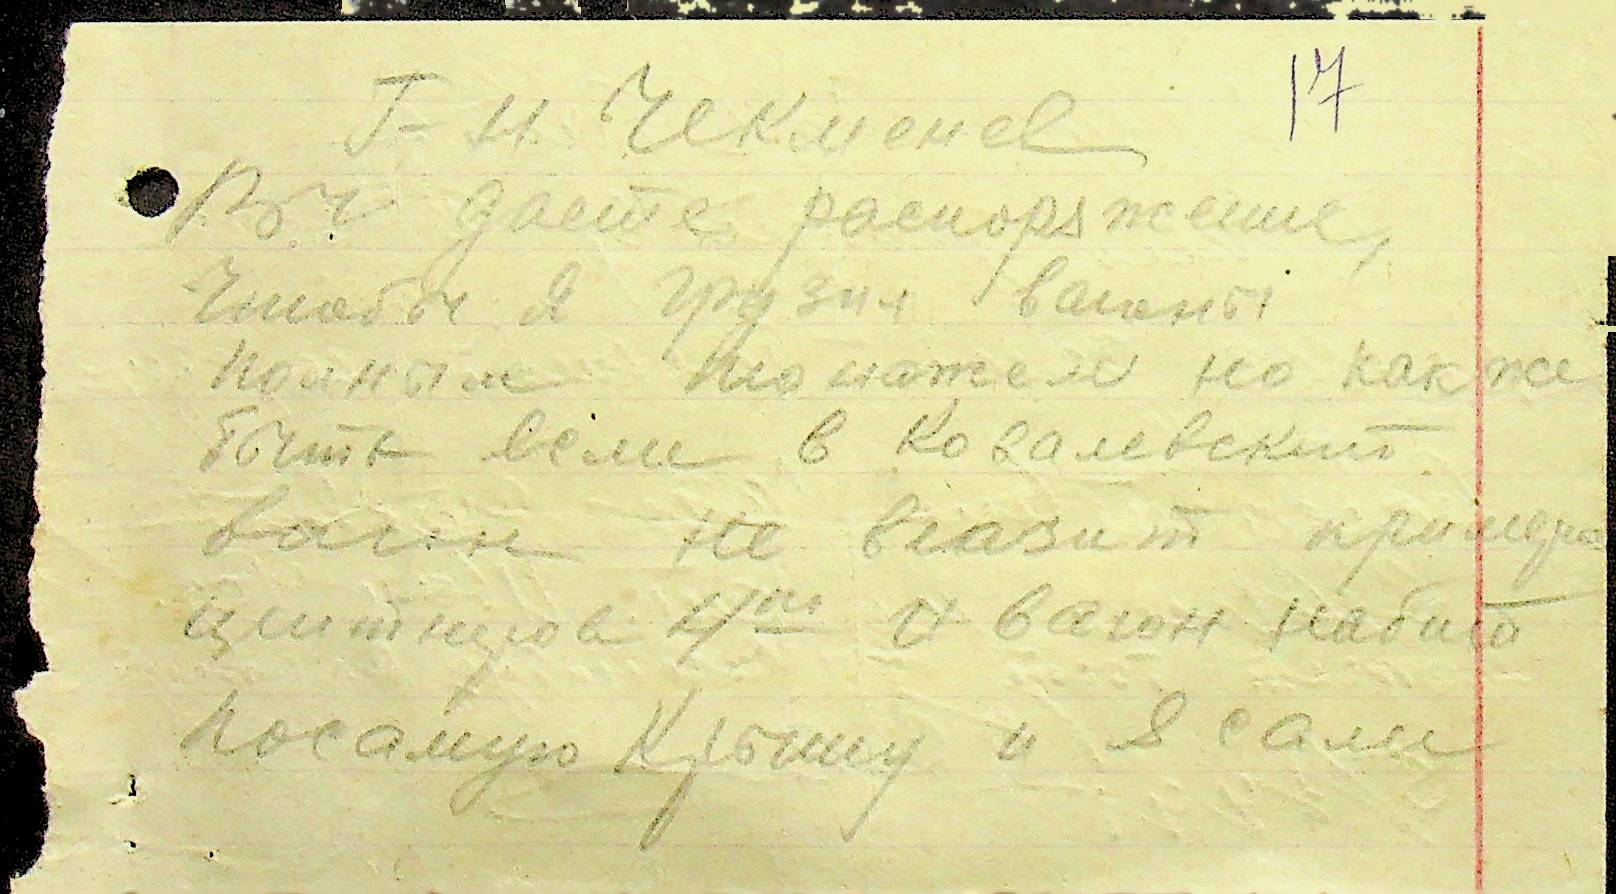 17
Г-н Чекменев
Вы даете распоряжение,
Чтобы я грузил вагоны
полным тонажем но как же
быть если в Ковалевский
вагон не влазит примерно
центнеров 4ох и вагон набит
посамую Крышу и я сам